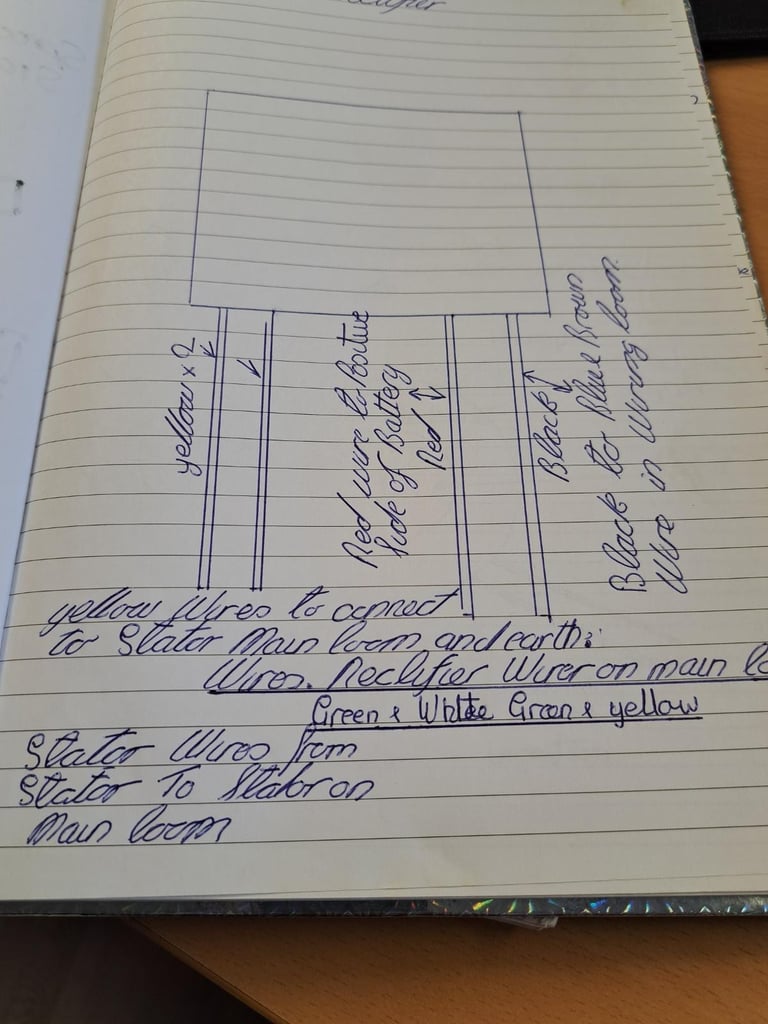 yellow x 2
Red wire to Positive
Side of Battery
Red
Black
Black to Blue Brown
Wire in Wiring loom.
yellow Wires to connect
to Stator Main loom and earth:
Wires. Rectifier Wires on main
Green & White Green & yellow
Stator Wires from
Stator To Stator on
Main loom